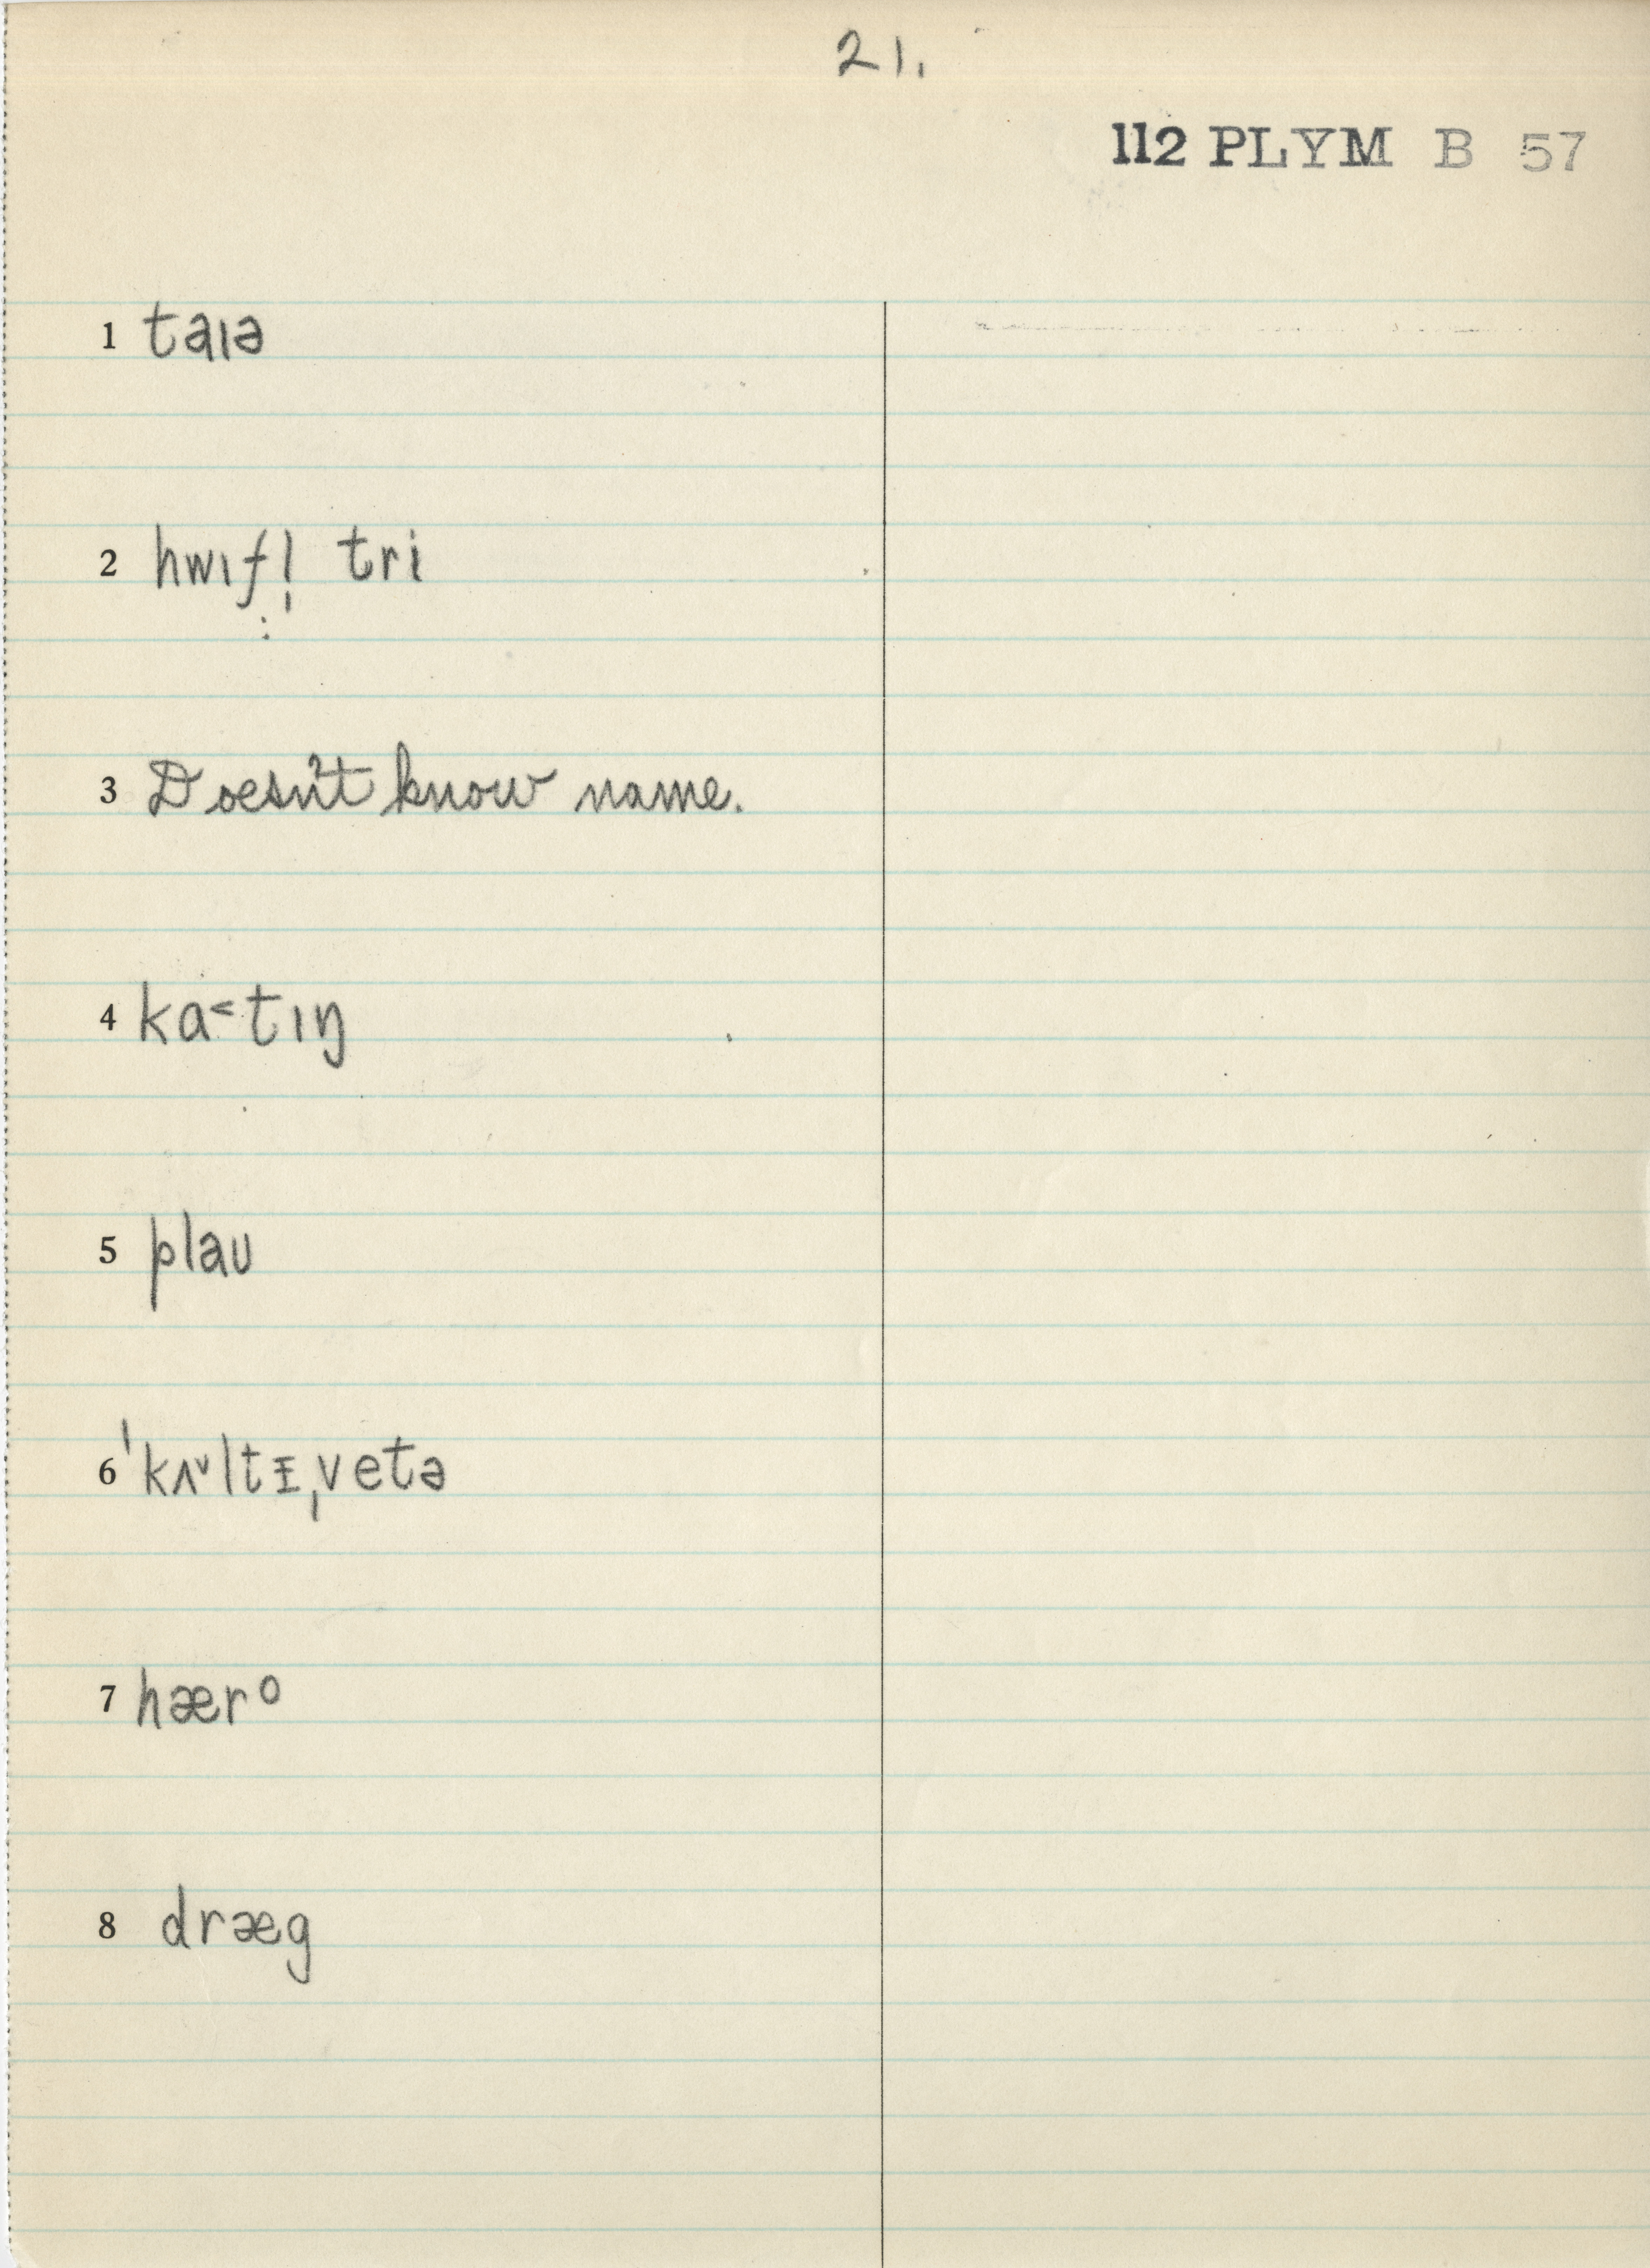 21.
112 PLYM B 57
1 taɪə
2 hwɪfl̩ tri
3 Doesn't know name.
4 ka˂tɪŋ
5 plaʊ
6 ˈkʌ˅ltɪ̵ˌvetə
7 hær°
8 dræg